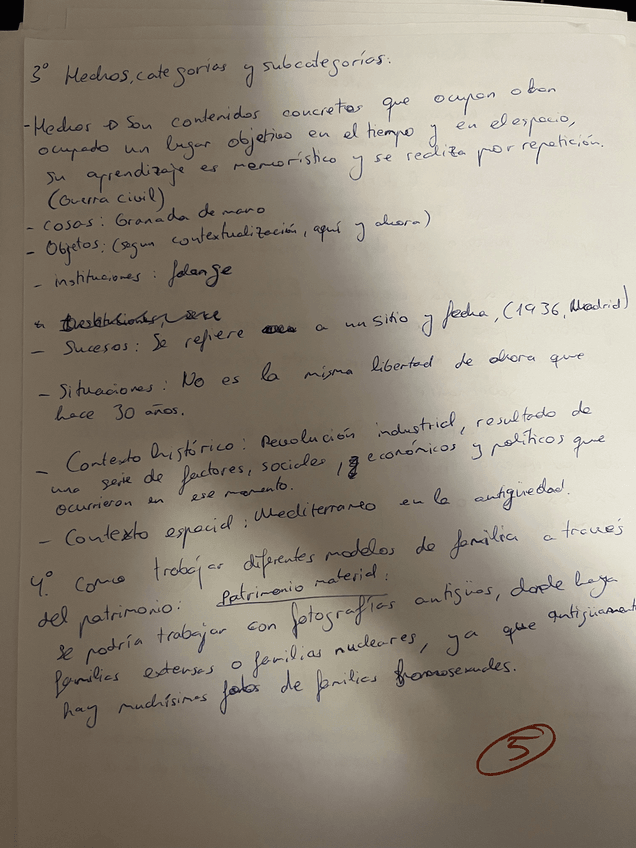 3º Hechos, categorias y subcategorías.
- Hechos → Son contenidos concretos que ocupan o han
ocupado un lugar objetivo en el tiempo y en el espacio,
su aprendizaje es memorístico y se realiza por repetición.
(Guerra civil)
- cosas: Granada de mano
- Objetos: (según contextualización, aquí y ahora)
- instituciones: falange
- Sucesos: Se refiere a un sitio y fecha, (1936, Madrid)
- Situaciones: No es la misma libertad de ahora que
hace 30 años.
- Contexto histórico: Revolución industrial, resultado de
una serie de factores, sociales, económicos y políticos que
ocurrieron en ese momento.
- Contexto espacial: Mediterraneo en la antigüedad.
4º. Como trabajar diferentes modelos de familia a través
del patrimonio: Patrimonio material:
se podría trabajar con fotografías antigüas, donde haya
familias extensas o familias nucleares, ya que antigüamente
hay muchísimas fotos de familias homosexuales.
5